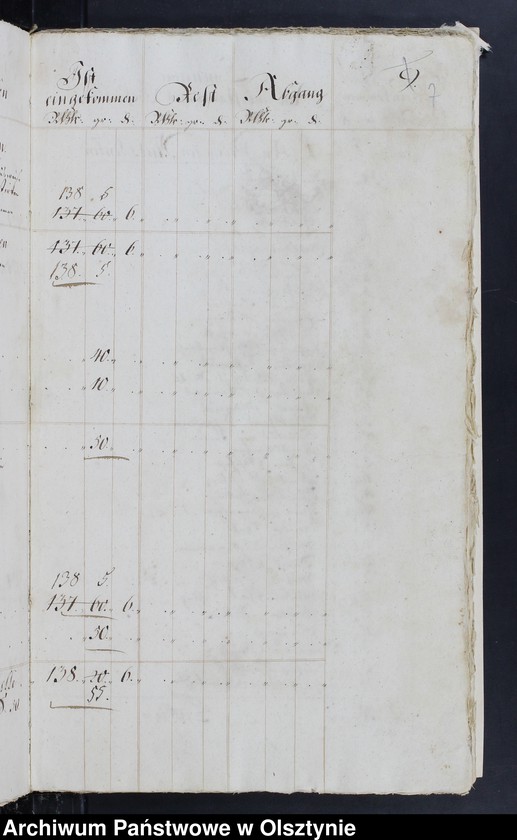 Ist
eingekommen Rest Abgang
Rthlr. gr. d. Rthlr. gr. d. Rthlr. gr. d.
7
138 5
137 60 6
137 60 6
138 5
40
10
50
138 5
137 60 6
50
138 20 6
55
Archiwum Państwowe w Olsztynie